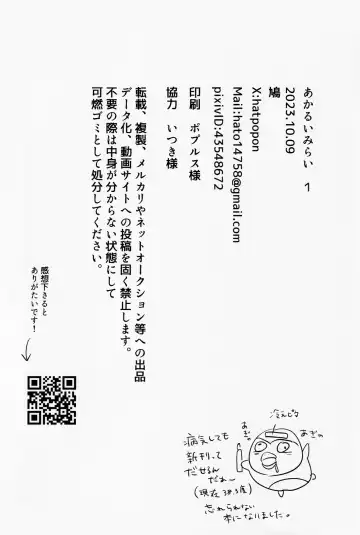 あかるいみらい 1
2023.10.09
鳩
X:hatpopon
Mail:hato14758@gmail.com
pixivID:43548672
印刷 ポプルス様
協力 いつき様
転載、複製、メルカリやネットオークション等への出品
データ化、動画サイトへの投稿を固く禁止します。
不要の際は中身が分からない状態にして
可燃ゴミとして処分してください。
感想下さると
ありがたいです!
冷えピタ
あぎゃ
あぎの
病気しても
新刊って
だせるん
だね〜
(現在38.3度)
忘れられない
本になりました。